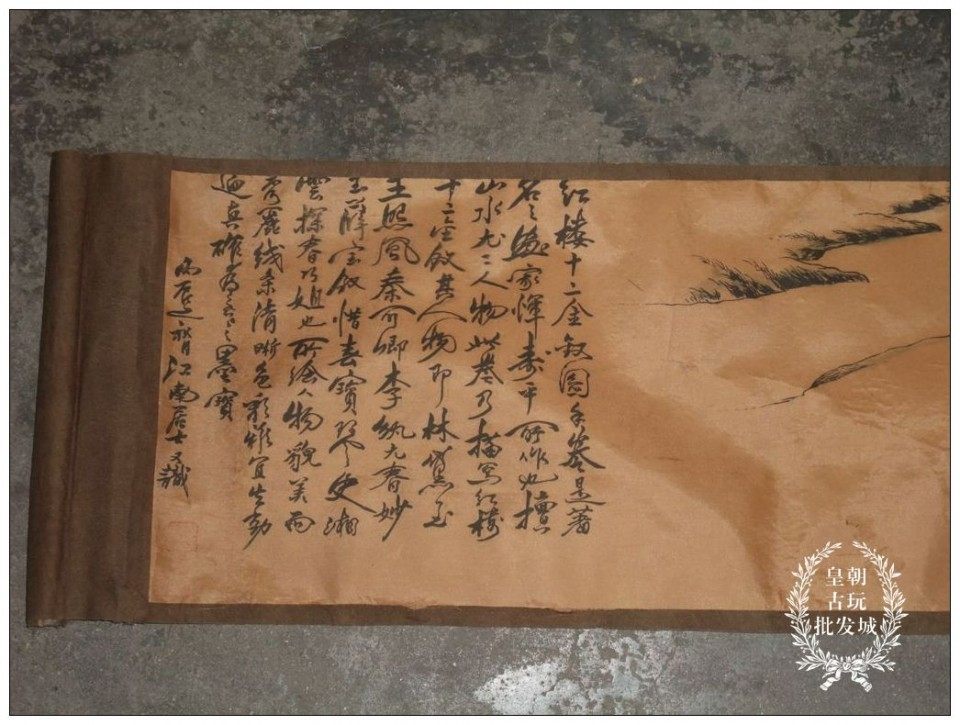 红楼十二金钗图手卷是著
名之画家恽寿平所作也擅
山水尤工人物此卷乃描写红楼
十二金钗其人物即林黛玉
王熙凤秦可卿李纨元春妙
玉薛宝钗惜春宝琴史湘
云探春巧姐也所绘人物貌美而
秀丽线条清晰色彩雅宜生动
逼真确为之墨宝
丙辰 江南居士又识
皇朝
古玩
批发城